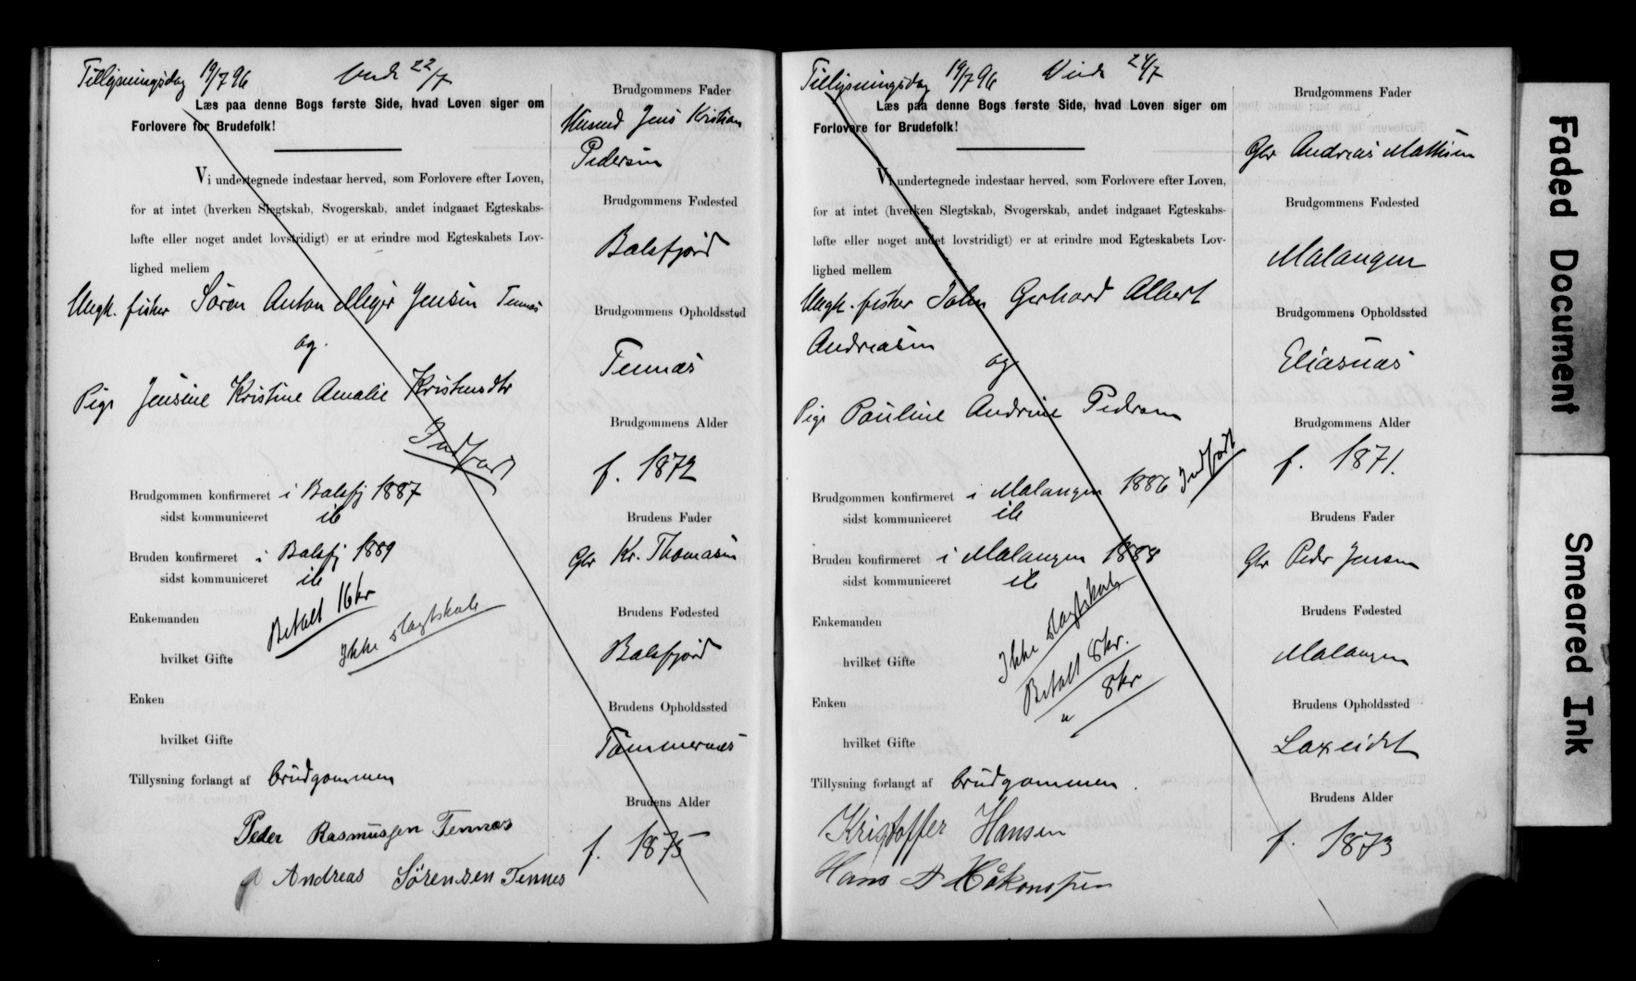 Tillysningsdag 19/7 96 22/7
Læs paa denne Bogs første Side, hvad Loven siger om
Forlovere for Brudefolk!
Vi undertegnede indestaar herved, som Forlovere efter Loven,
for at intet (hverken Slegtskab, Svogerskab, andet indgaaet Egteskabs-
løfte eller noget andet lovstridigt) er at erindre mod Egteskabets Lov-
lighed mellem
Ungk. fisker Søren Anton Meyer Jensen Tennæs
og
Pige Jensine Kristine Amalie Kristensdtr
Indført
Brudgommen konfirmeret i Balsfj 1887
sidst kommuniceret
Bruden konfirmeret i Balsfj 1889
sidst kommuniceret
Betalt 16 kr
Ikke slagtskab
Enkemanden
hvilket Gifte
Enken
hvilket Gifte
Tillysning forlangt af brudgommen
Peder Rasmussen Tennæs
Andreas Sørensen Tennes
Brudgommens Fader
Husmd Jens Kristian
Pedersen
Brudgommens Fødested
Balsfjord
Brudgommens Opholdssted
Tennæs
Brudgommens Alder
f. 1872
Brudens Fader
Gbr Kr. Thomasen
Brudens Fødested
Balsfjord
Brudens Opholdssted
Tømmernæs
Brudens Alder
f. 1875
Tillysningsdag 19/7 96 24/7
Læs paa denne Bogs første Side, hvad Loven siger om
Forlovere for Brudefolk!
Vi undertegnede indestaar herved, som Forlovere efter Loven,
for at intet (hverken Slegtskab, Svogerskab, andet indgaaet Egteskabs-
løfte eller noget andet lovstridigt) er at erindre mod Egteskabets Lov-
lighed mellem
Ungk. fisker Johan Gerhard Albert
Andreasen
og
Pige Pauline Andrine Pedersen
Indført
Brudgommen konfirmeret i Malangen 1886
sidst kommuniceret
Bruden konfirmeret i Malangen 1888
sidst kommuniceret
Ikke slagtskab
Betalt 8 kr.
" 8 kr
Enkemanden
hvilket Gifte
Enken
hvilket Gifte
Tillysning forlangt af brudgommen.
Kristoffer Hansen
Hans A Håkonssen
Brudgommens Fader
Gbr Andreas Mathisen
Brudgommens Fødested
Malangen
Brudgommens Opholdssted
Eliasnæs
Brudgommens Alder
f. 1871.
Brudens Fader
Gbr Peder Jensen
Brudens Fødested
Malangen
Brudens Opholdssted
Laxeidet
Brudens Alder
f. 1873
Faded Document
Smeared Ink